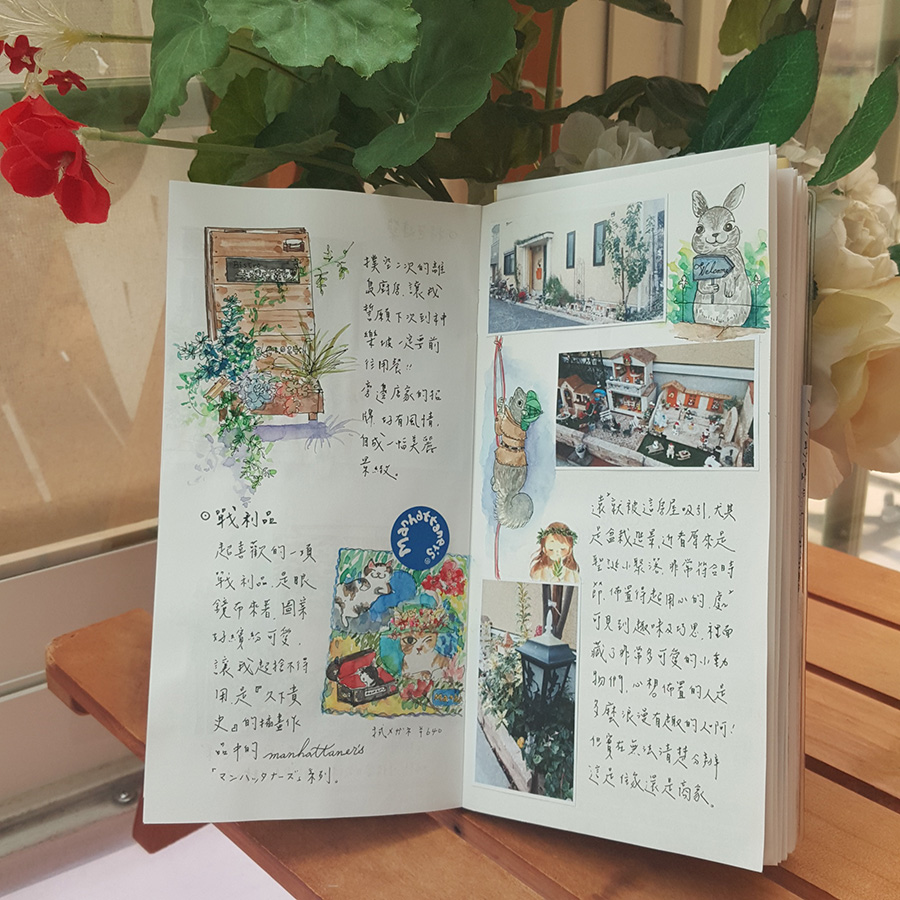 撲空二次的離
島廚房,讓我
誓願下次到神
樂坡一定要前
往用餐!!
旁邊店家的招
牌好有風情,
自成一幅美麗
景緻。
戰利品
超喜歡的一項
戰利品,是眼
鏡布來着,圖案
好繽紛可愛,
讓我超捨不得
用是『久下貴
史』的插畫作
品中的 manhattaner's
「マンハッタナーズ」系列。
Manhattaner's
メガネ ¥640
Welcome
遠遠就被這房屋吸引,尤其
是盆栽造景,近看原來是
聖誕小聚落,非常符合時
節,佈置得超用心的,處處
可見到趣味及巧思,裡面
藏了非常多可愛的小動
物們,心想佈置的人是
多麼浪漫有趣的人啊!
但實在無法清楚分辨
這是住家還是商家。